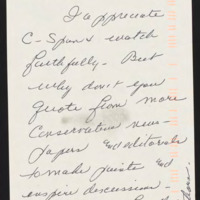 I appreciate
C-Span & watch
faithfully. But
why don't you
quote from more
Conservative news-
papers and editorials
to make points and
inspire discussion.